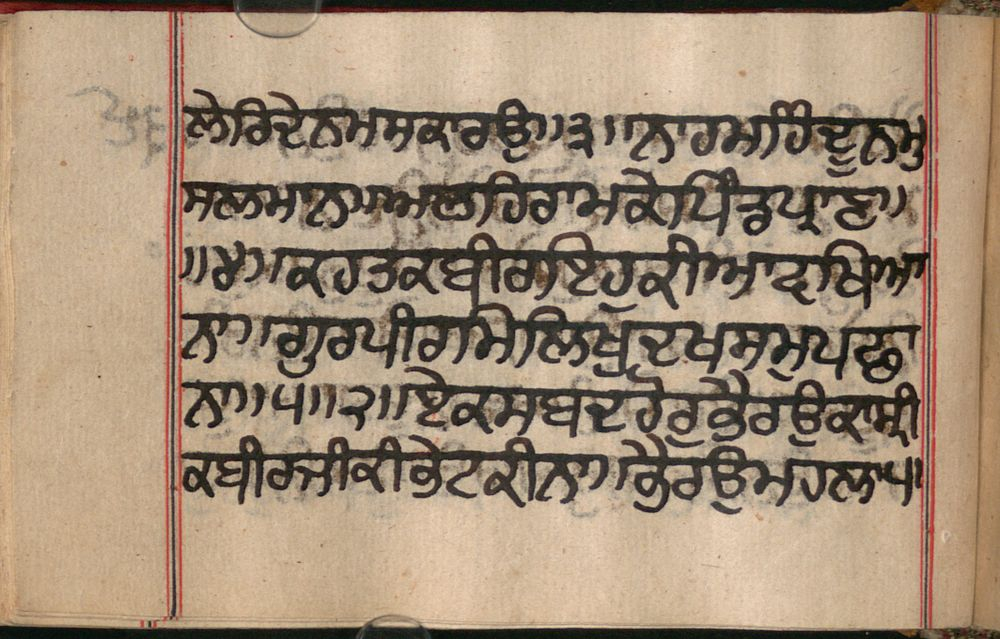 ਲੇਰਿਦੇਨਮਸਕਾਰਉ॥੩॥ਨਾਹਮਹਿੰਦੂਨਮੁ
ਸਲਮਾਨ॥ਅਲਹਿਰਾਮਕੇਪਿੰਡਪ੍ਰਾਣ॥
॥੪॥ਕਹਤਕਬੀਰਇਹੁਕੀਆਵਖਿਆ
ਨਾ॥ਗੁਰਪੀਰਮਿਲਿਖੁਦਖਸਮੁਪਛਾ
ਨਾ॥੫॥੨॥ਏਕਸਬਦਹੋਰੁਭੈਰਉਕਾਸ੍ਰੀ
ਕਬੀਰਜੀਕੀਭੇਟਕੀਨਾ॥ਭੈਰਉਮਹਲਾ੫॥